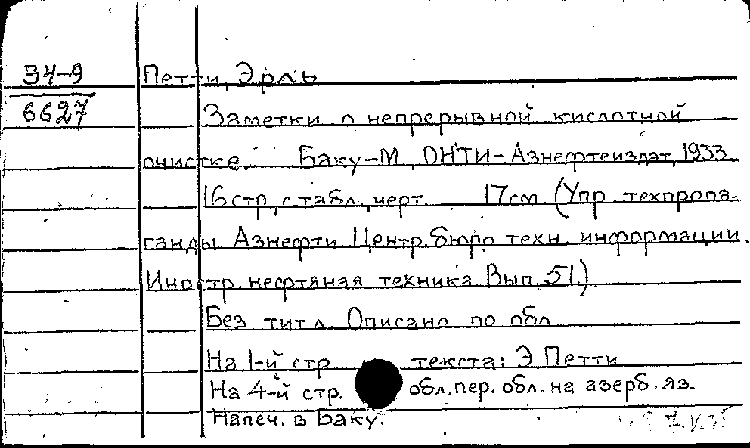 34-9 Петти, Эрль
6627 Заметки о непрерывной кислотной
очистке. Баку-М, ОНТИ-Азнефтеиздат, 1933
16 стр. с табл., черт. 17 см (Упр. техпропа-
ганды Азнефти Центр. бюро техн. информации.
Иностр. нефтяная техника Вып. 51.)
Без тит. л. Описано по обл.
На 1-й стр. текста: Э Петти
На 4-й стр. обл. пер. обл. на азерб. яз.
Напеч. в Баку.